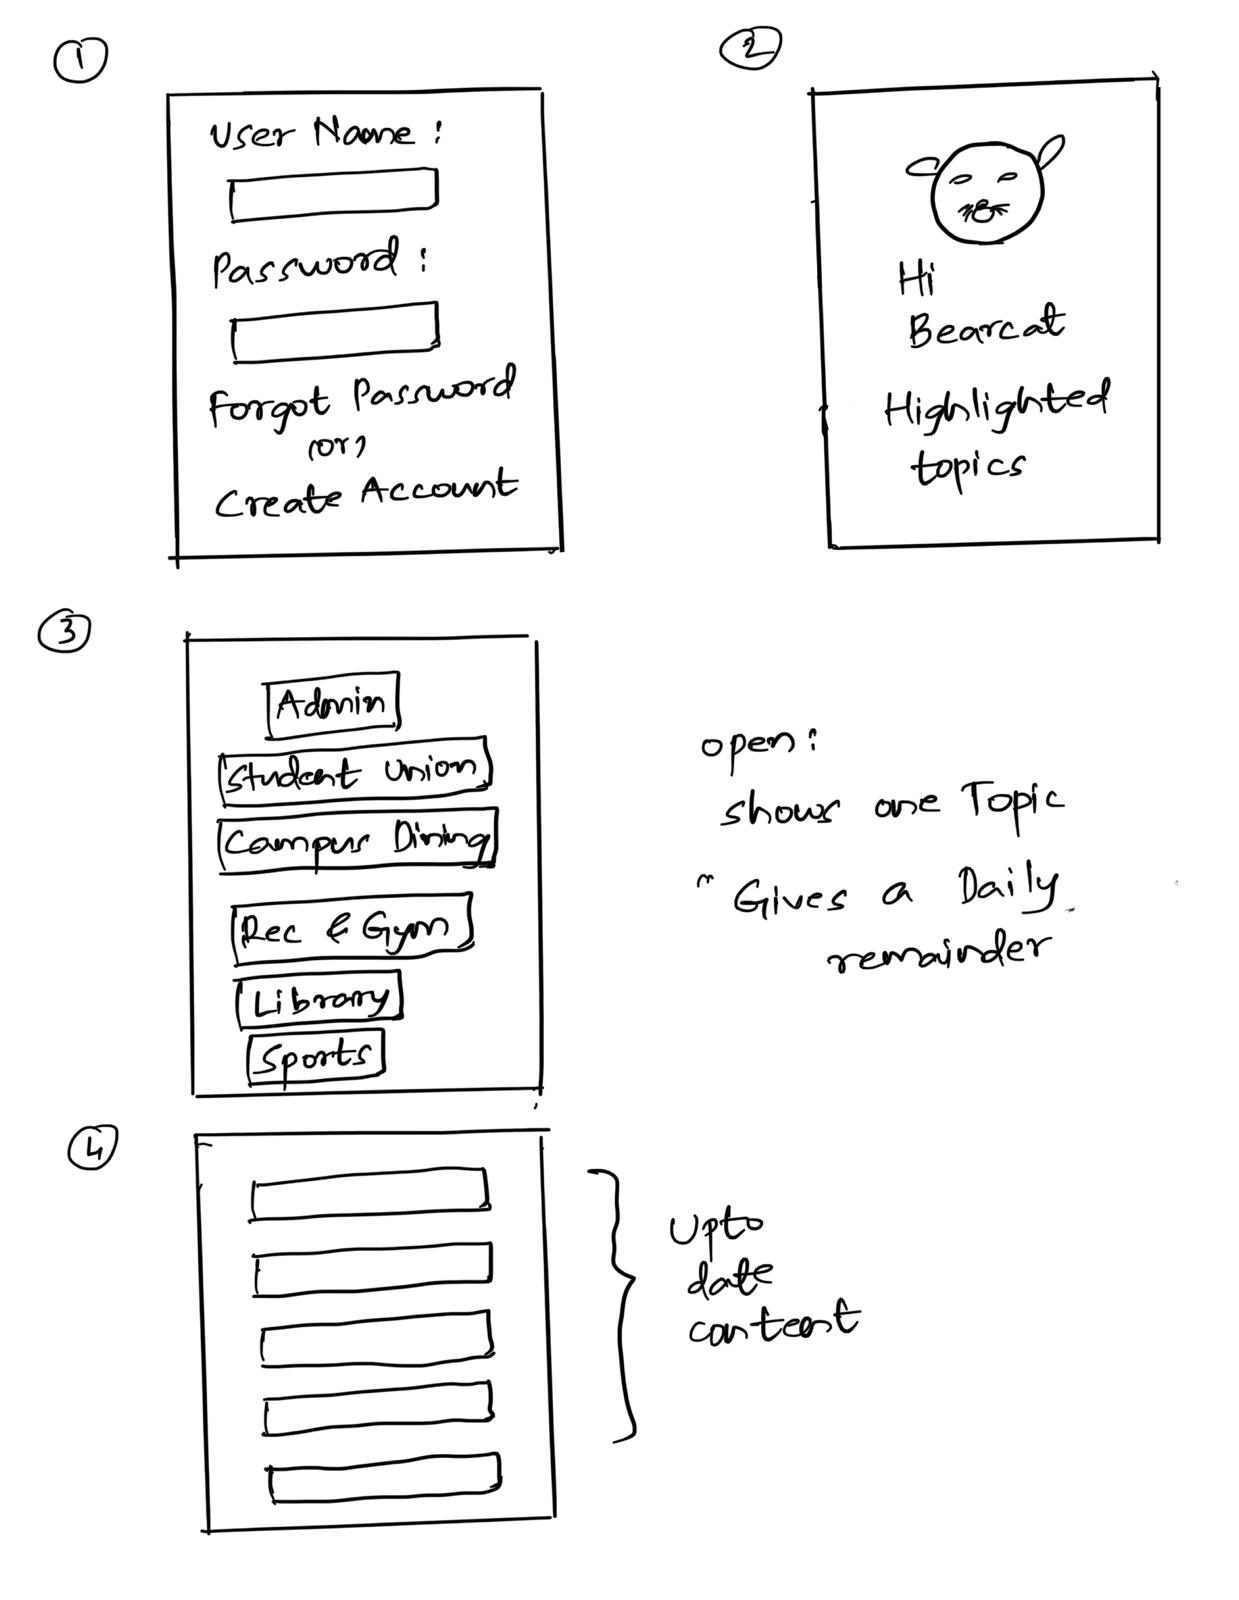 1
User Name :
Password :
Forgot Password
(or)
Create Account
2
Hi
Bearcat
Highlighted
topics
3
Admin
Student Union
Campus Dining
Rec & Gym
Library
Sports
open :
shows one Topic
" Gives a Daily
remainder
4
Upto
date
content